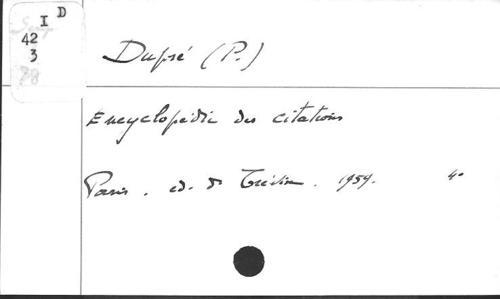 I D
42
3
78
Dupré (P.)
Encyclopédie des citations
Paris. ed. de Trévise. 1959. 4°